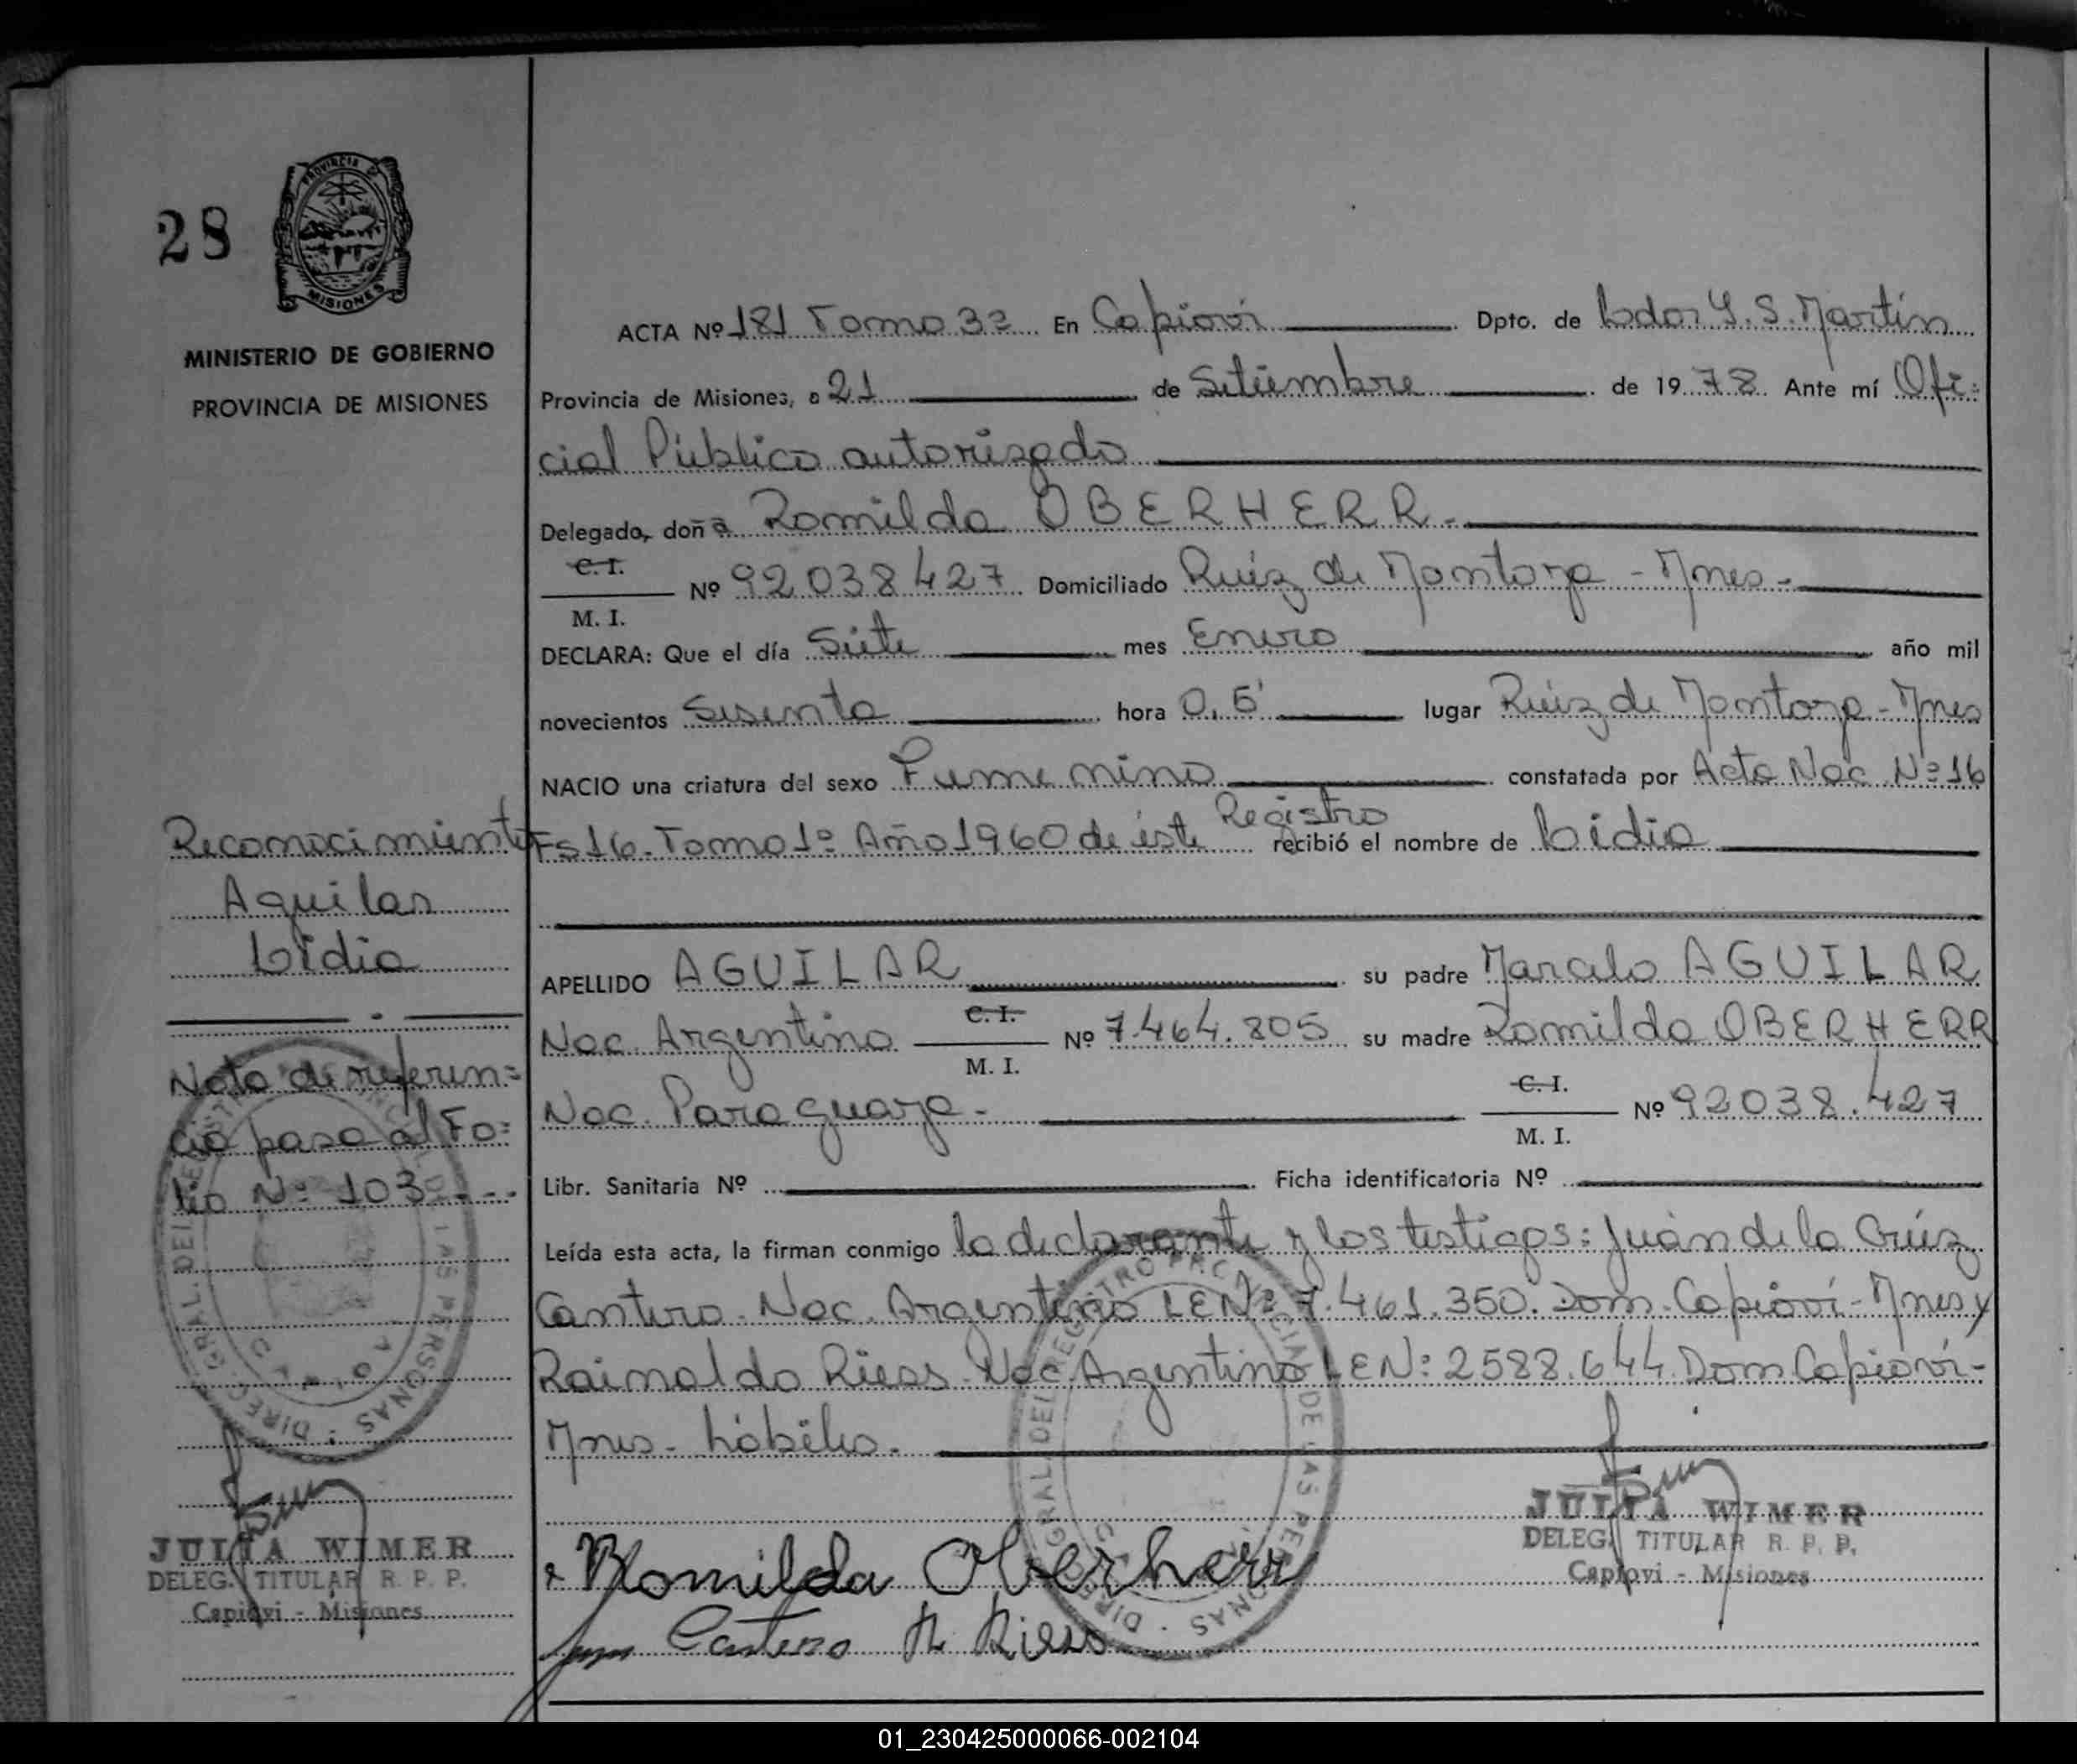 28
PROVINCIA DE
MISIONES
MINISTERIO DE GOBIERNO
PROVINCIA DE MISIONES
Reconocimiento
Aguilar
Lidia
Nota de referen=
cia pasa al Fo=
lio Nº 103
JULIA WIMER
DELEG. TITULAR R. P. P.
Capiovi - Misiones
ACTA Nº 181 Tomo 3º En Capioví Dpto. de Ldor G. S. Martín
Provincia de Misiones, a 21 de Setiembre de 1978 Ante mí Ofi=
cial Público autorizado
Delegado, doña Romilda OBERHERR.-
C. I.
Nº 92038427 Domiciliado Ruiz de Montoya - Mnes -
M. I.
DECLARA: Que el día Siete mes Enero año mil
novecientos Sesenta hora 0,5' lugar Ruiz de Montoya - Mnes
NACIO una criatura del sexo Femenino constatada por Acta Nac. Nº 16
Fs 16. Tomo 1º Año 1960 de éste Registro recibió el nombre de Lidia
APELLIDO AGUILAR su padre Marcelo AGUILAR
Nac. Argentino C. I. Nº 7.464.805 su madre Romilda OBERHERR
M. I.
Nac. Paraguaya - C. I. Nº 92038.427
M. I.
Libr. Sanitaria Nº Ficha identificatoria Nº
Leída esta acta, la firman conmigo la declarante y los testigos: Juan de la Crúz
Cantero. Nac. Argentino LE Nº 7.461.350. Dom. Capioví - Mnes y
Raimaldo Riess. Nac. Argentino LE Nº 2588.644 Dom Capioví -
Mnes - hábiles.
JULIA WIMER
DELEG. TITULAR R. P. P.
Capiovi - Misiones
Romilda Oberherr
Cantero R. Riess
01_230425000066-002104